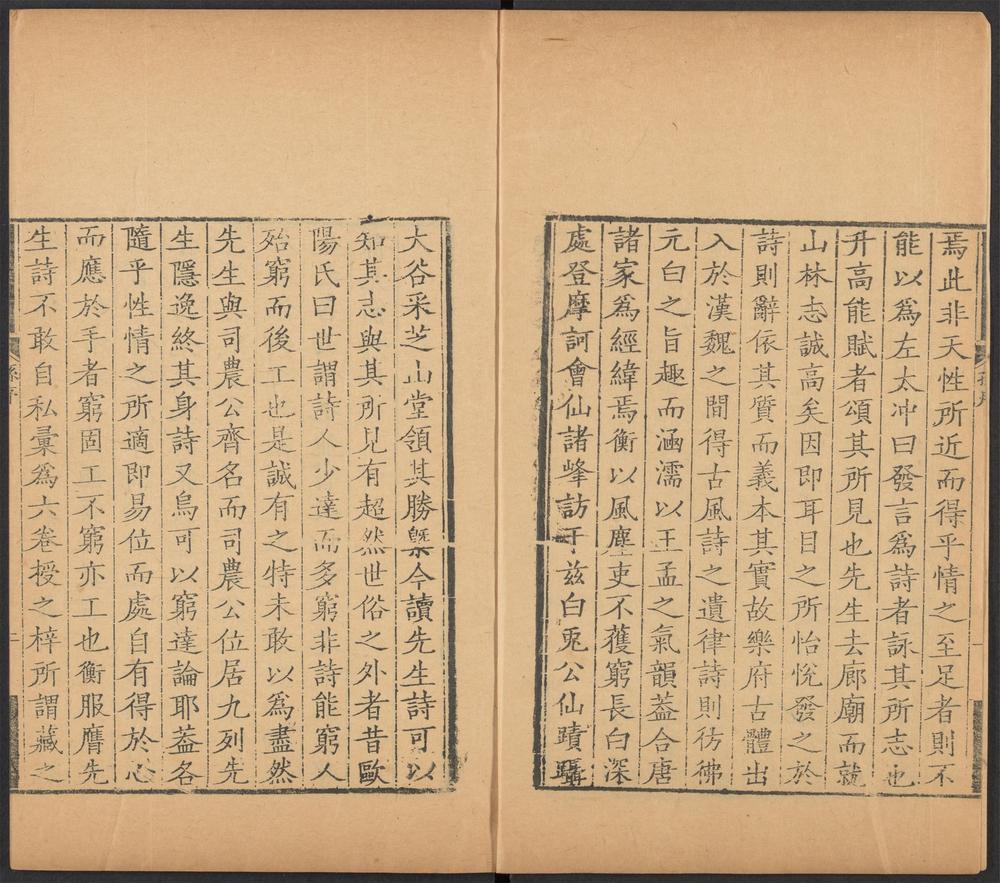 焉此非天性所近而得乎情之至足者則不
能以爲左太冲曰發言爲詩者詠其所志也
升高能賦者頌其所見也先生去廊廟而就
山林志誠高矣因即耳目之所怡悅發之於
詩則辭依其質而義本其實故樂府古體出
入於漢魏之間得古風詩之遺律詩則彷彿
元白之旨趣而涵濡以王孟之氣韻蓋合唐
諸家爲經緯焉衡以風塵吏不獲窮長白深
處登摩訶會仙諸峰訪于兹白兎公仙蹟躡
大谷采芝山堂領其勝槩今讀先生詩可以
知其志與其所見有超然世俗之外者昔歐
陽氏曰世謂詩人少達而多窮非詩能窮人
殆窮而後工也是誠有之特未敢以爲盡然
先生與司農公齊名而司農公位居九列先
生隱逸終其身詩又烏可以窮達論耶蓋各
隨乎性情之所適即易位而處自有得於心
而應於手者窮固工不窮亦工也衡服膺先
生詩不敢自私彙爲六卷授之梓所謂藏之